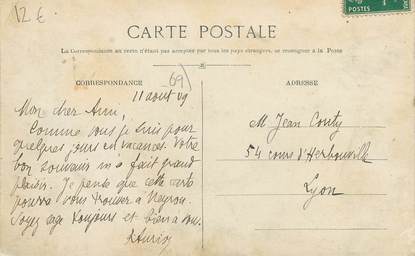 12 €
POSTES
CARTE POSTALE
La Correspondance au recto n'étant pas acceptée par tous les pays étrangers, se renseigner à la Poste
CORRESPONDANCE
(69)
ADRESSE
11 aout 09
Mon cher Ami,
Comme vous je suis pour
quelques jours en vacances. Votre
bon souvenir m'a fait grand
plaisir. Je pense que cette carte
pourra vous trouver à Neyron.
Soyez sage toujours et bien à vous.
M Jean Couty
54 cours d'Herbouville
Lyon